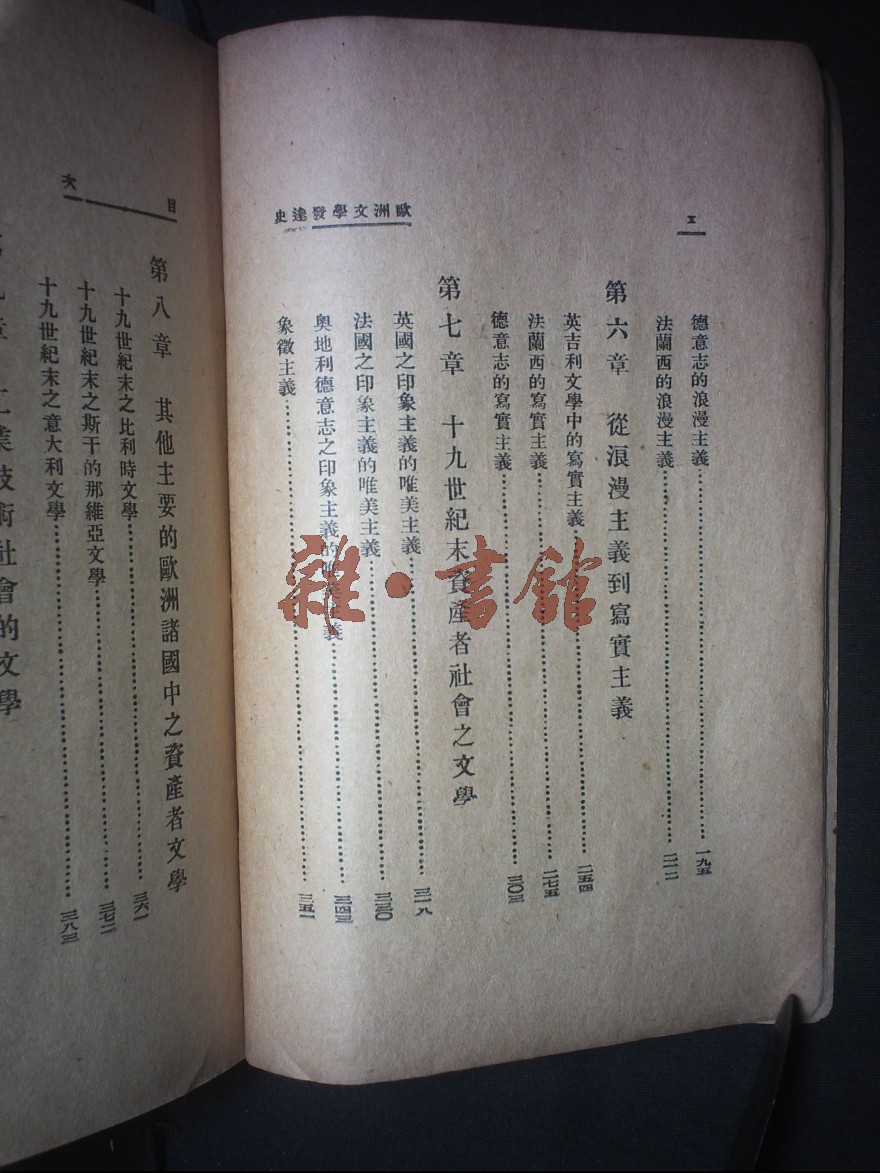 x
歐洲文學發達史
德意志的浪漫主義……一九五
法蘭西的浪漫主義……
第六章 從浪漫主義到寫實主義
英吉利文學中的寫實主義……二五四
法蘭西的寫實主義……二七五
德意志的寫實主義……三〇三
第七章 十九世紀末資產者社會之文學
英國之印象主義的唯美主義……三一八
法國之印象主義的唯美主義……三三〇
奧地利德意志之印象主義的唯美主義……三四三
象徵主義……三五一
目次
第八章 其他主要的歐洲諸國中之資產者文學
十九世紀末之比利時文學……三六一
十九世紀末之斯干的那維亞文學……三七二
十九世紀末之意大利文學……三八三
第九章 工業技術社會的文學
雜·書館